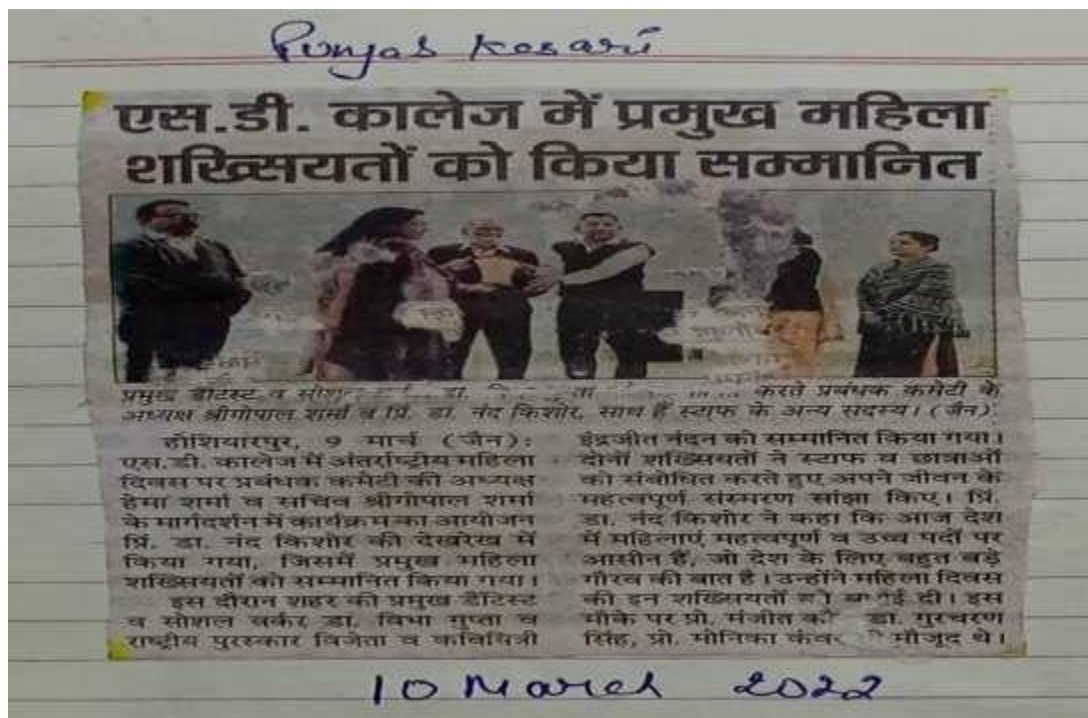 Punjab Kesari
एस.डी. कालेज में प्रमुख महिला
शख्सियतों को किया सम्मानित
प्रमुख डैंटिस्ट व सोशल डा. करते प्रबंधक कमेटी के
अध्यक्ष श्रीगोपाल शर्मा व प्रिं. डा. नंद किशोर, साथ हैं स्टाफ के अन्य सदस्य। (जैन)
होशियारपुर, 9 मार्च (जैन):
एस.डी. कालेज में अंतर्राष्ट्रीय महिला
दिवस पर प्रबंधक कमेटी की अध्यक्ष
हेमा शर्मा व सचिव श्रीगोपाल शर्मा
के मार्गदर्शन में कार्यक्रम का आयोजन
प्रिं. डा. नंद किशोर की देखरेख में
किया गया, जिसमें प्रमुख महिला
शख्सियतों को सम्मानित किया गया।
इस दौरान शहर की प्रमुख डैंटिस्ट
व सोशल वर्कर डा. विभा गुप्ता व
राष्ट्रीय पुरस्कार विजेता व कवियित्री
इंद्रजीत नंदन को सम्मानित किया गया।
दोनों शख्सियतों ने स्टाफ व छात्राओं
को संबोधित करते हुए अपने जीवन के
महत्वपूर्ण संस्मरण सांझा किए। प्रिं.
डा. नंद किशोर ने कहा कि आज देश
में महिलाएं महत्वपूर्ण व उच्च पदों पर
आसीन हैं, जो देश के लिए बहुत बड़े
गौरव की बात है। उन्होंने महिला दिवस
की इन शख्सियतों को बधाई दी। इस
मौके पर प्रो. मंजीत कौर डा. गुरचरण
सिंह, प्रो. मोनिका कंवर मौजूद थे।
10 March 2022